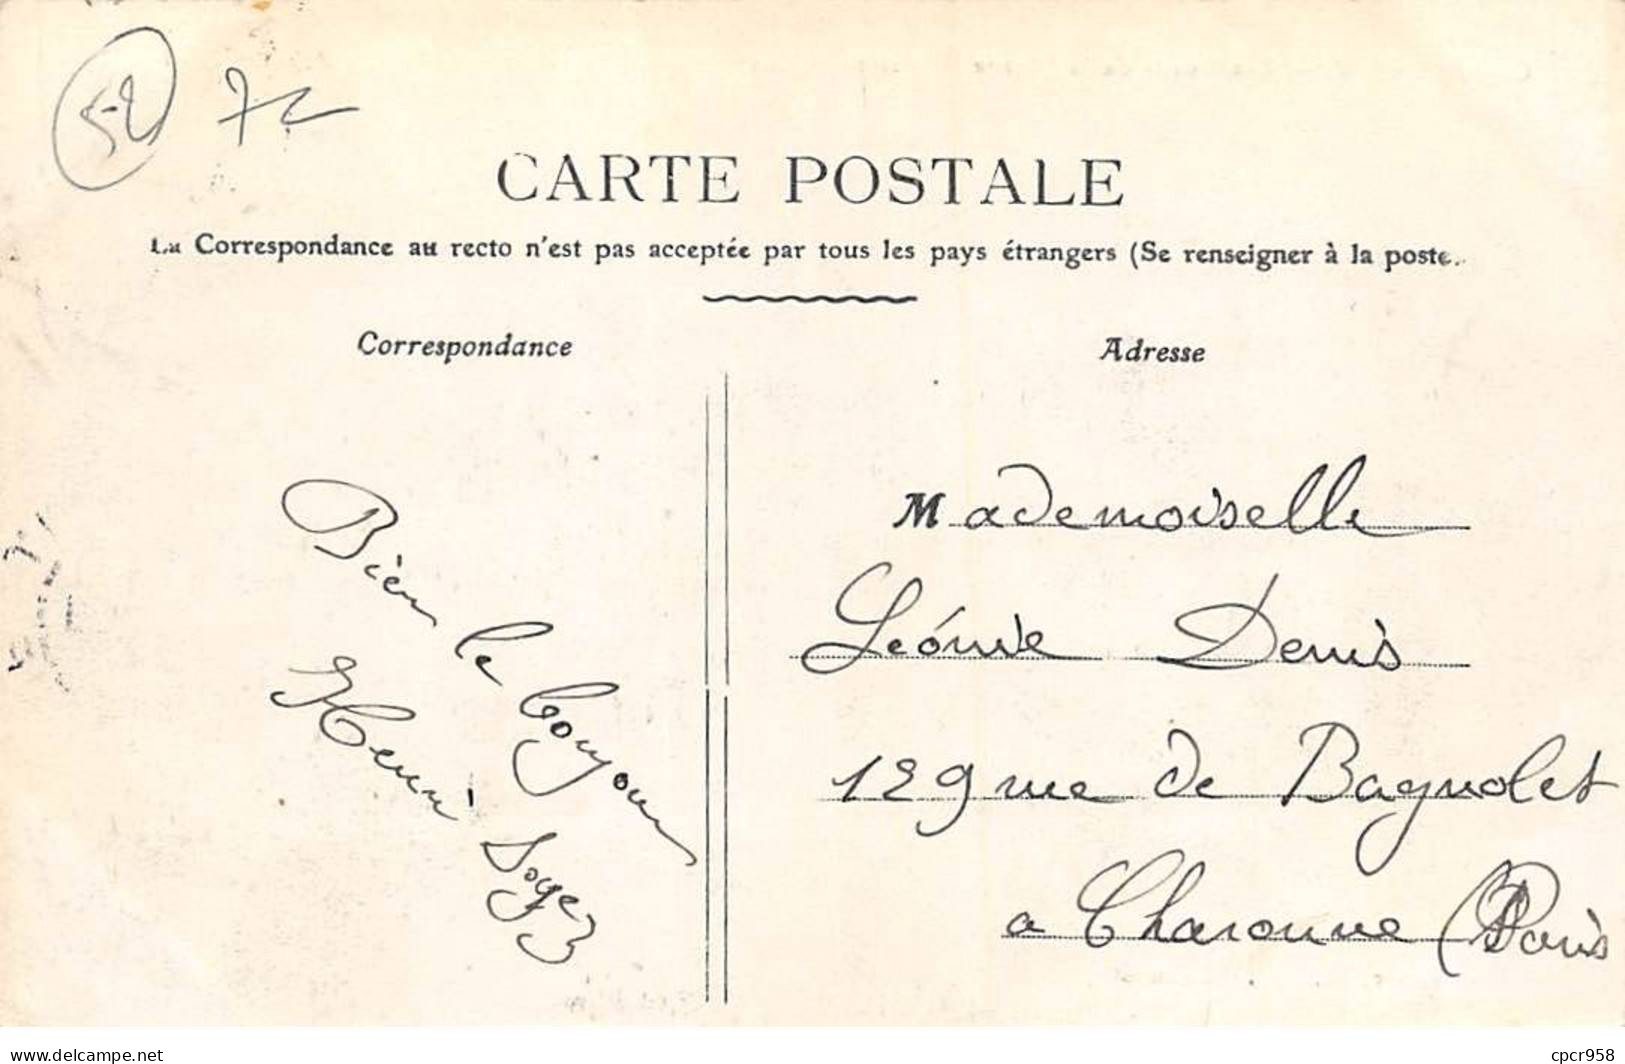 52 72
CARTE POSTALE
La Correspondance au recto n'est pas acceptée par tous les pays étrangers (Se renseigner à la poste.
Correspondance
Adresse
Bien le bonjour
Henri Soyez
Mademoiselle
Léonie Denis
129 rue de Bagnolet
a Charonne (Paris
www.delcampe.net
cpcr958